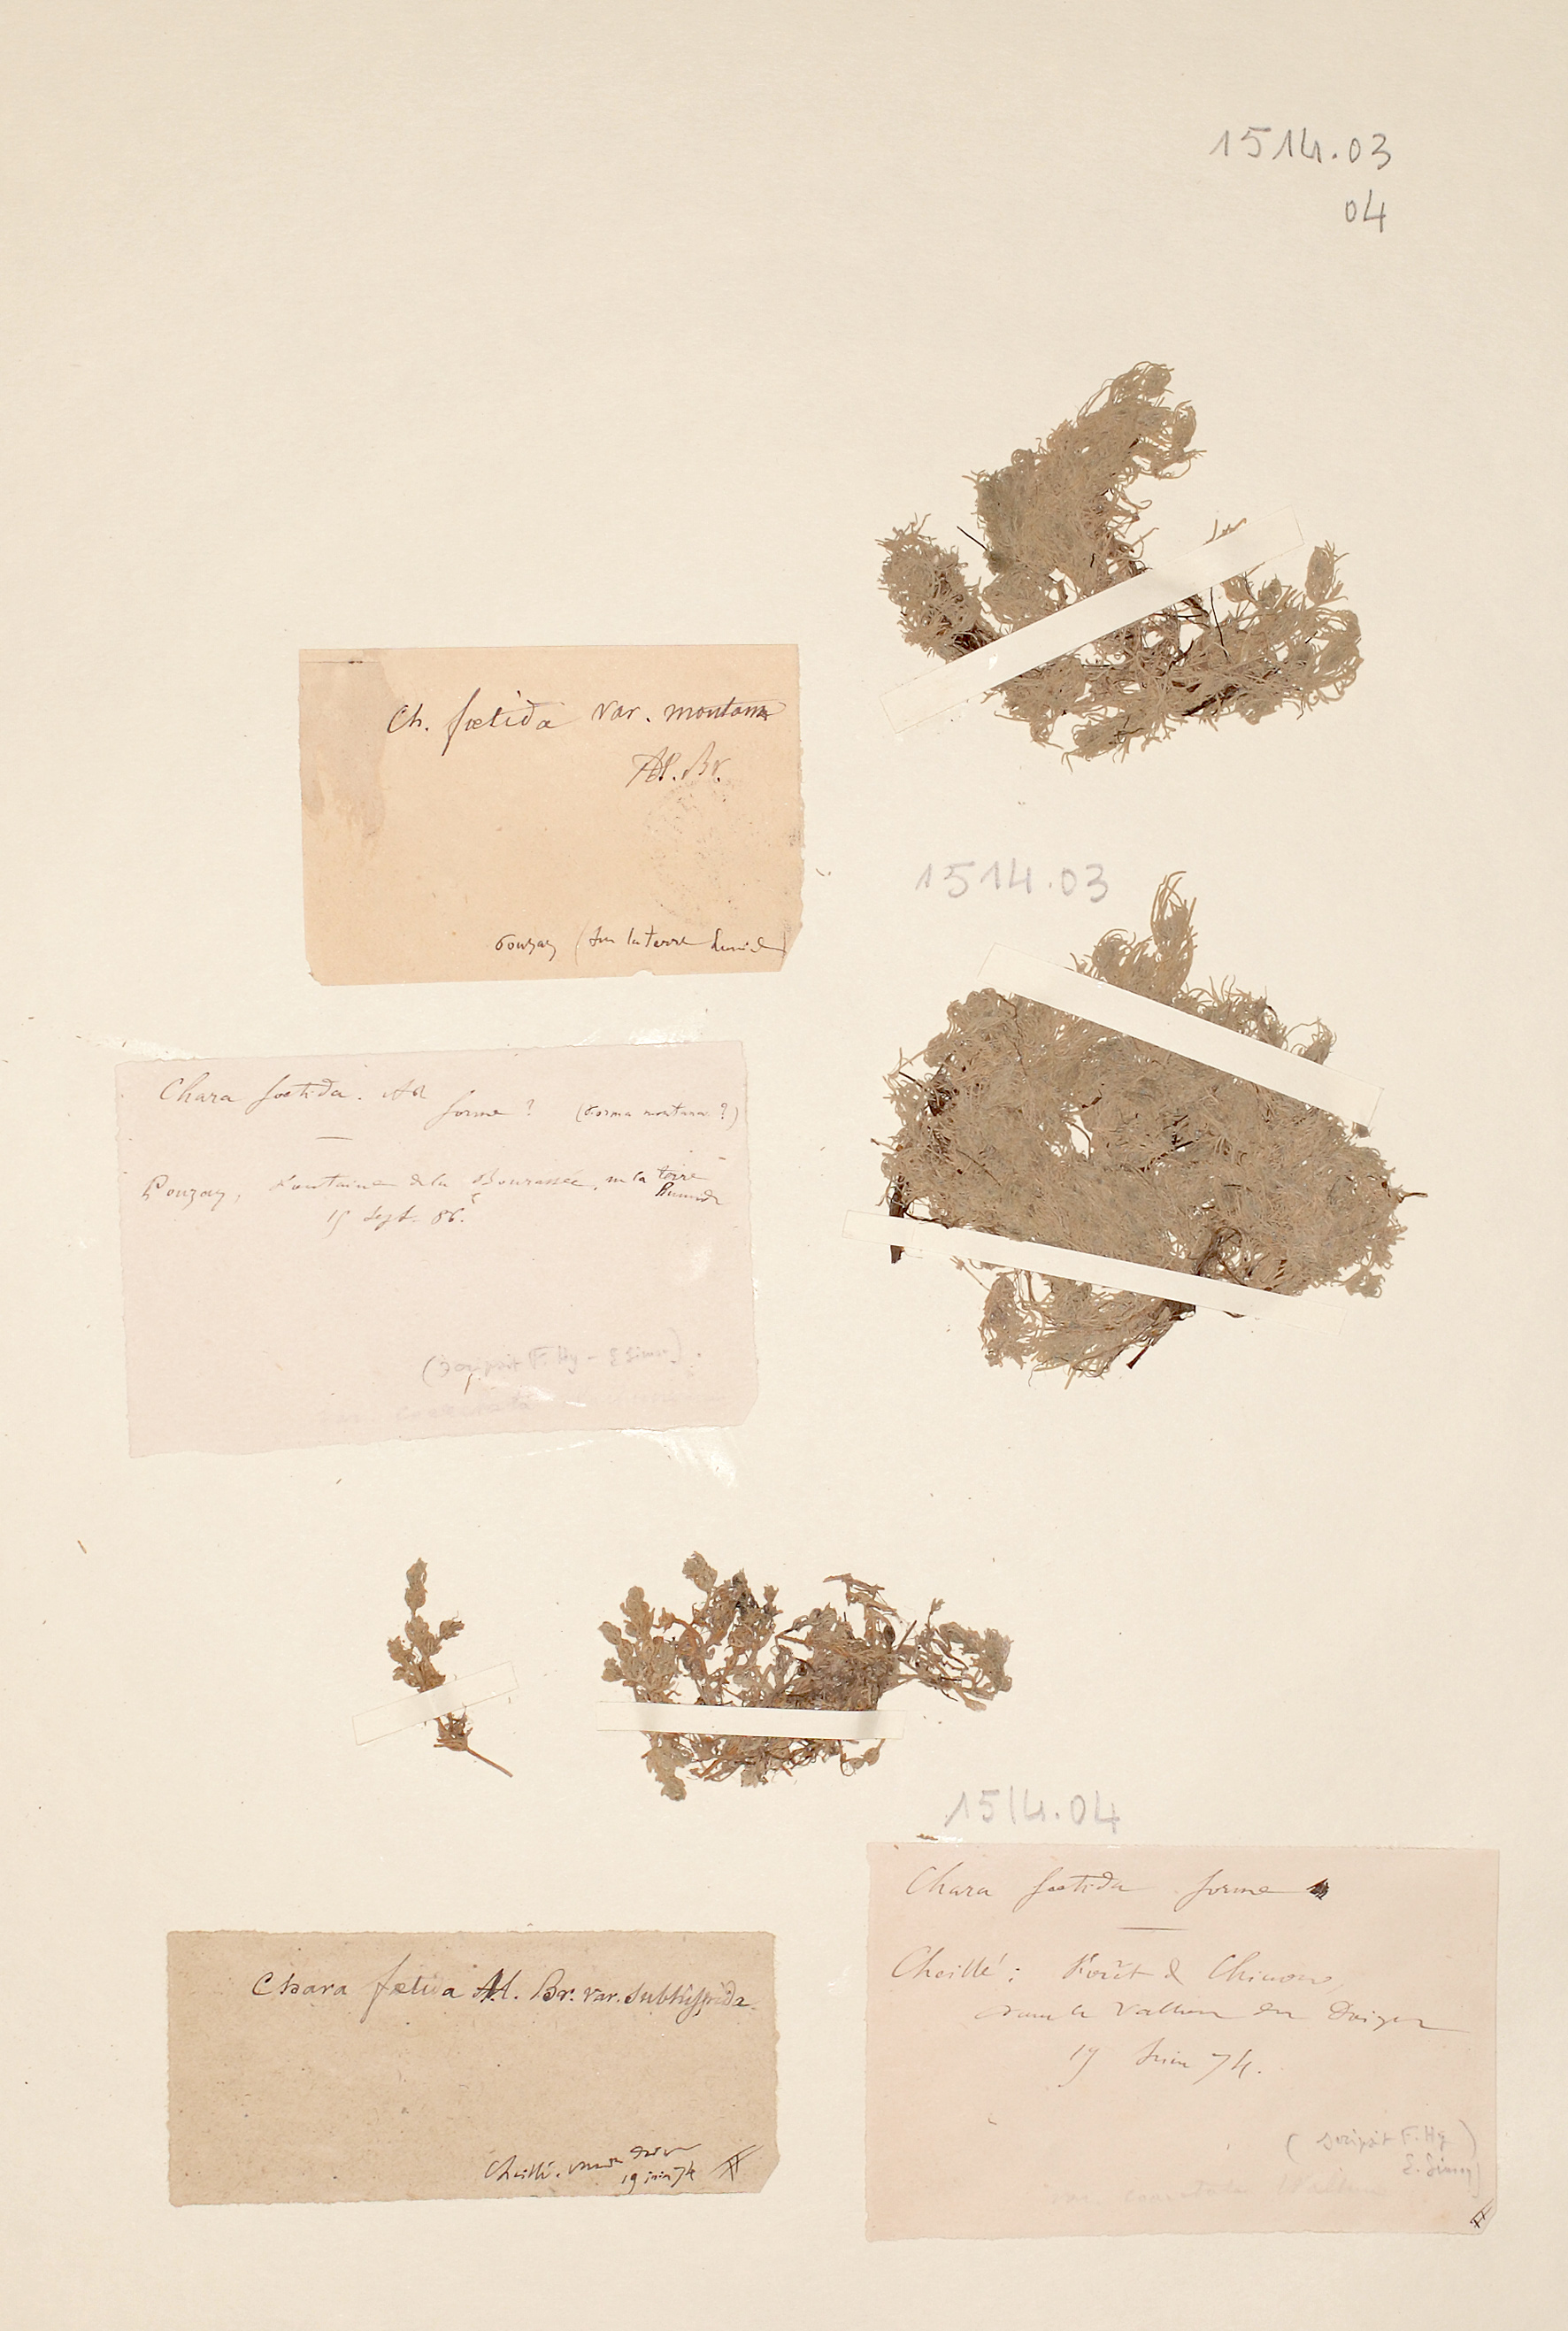 1514.03
04
Ch. fœtida var. montana
Al. Br.
Pouzay (sur la terre humide)
1514.03
Chara foetida. Al
forme? (forma montana?)
Pouzay, Fontaine de la Bourassée, sur la terre
humide
15 Sept. 86.
(scripsit F. Hy - E. Simon).
var. coarctata
1514.04
Chara foetida forme
Cheillé: Forêt de Chinon,
dans le vallon du
19 Juin 74.
(scripsit F. Hy
E. Simon)
var. coarctata
Chara fœtida Al. Br. var. subhispida
Cheillé.
19 juin 74